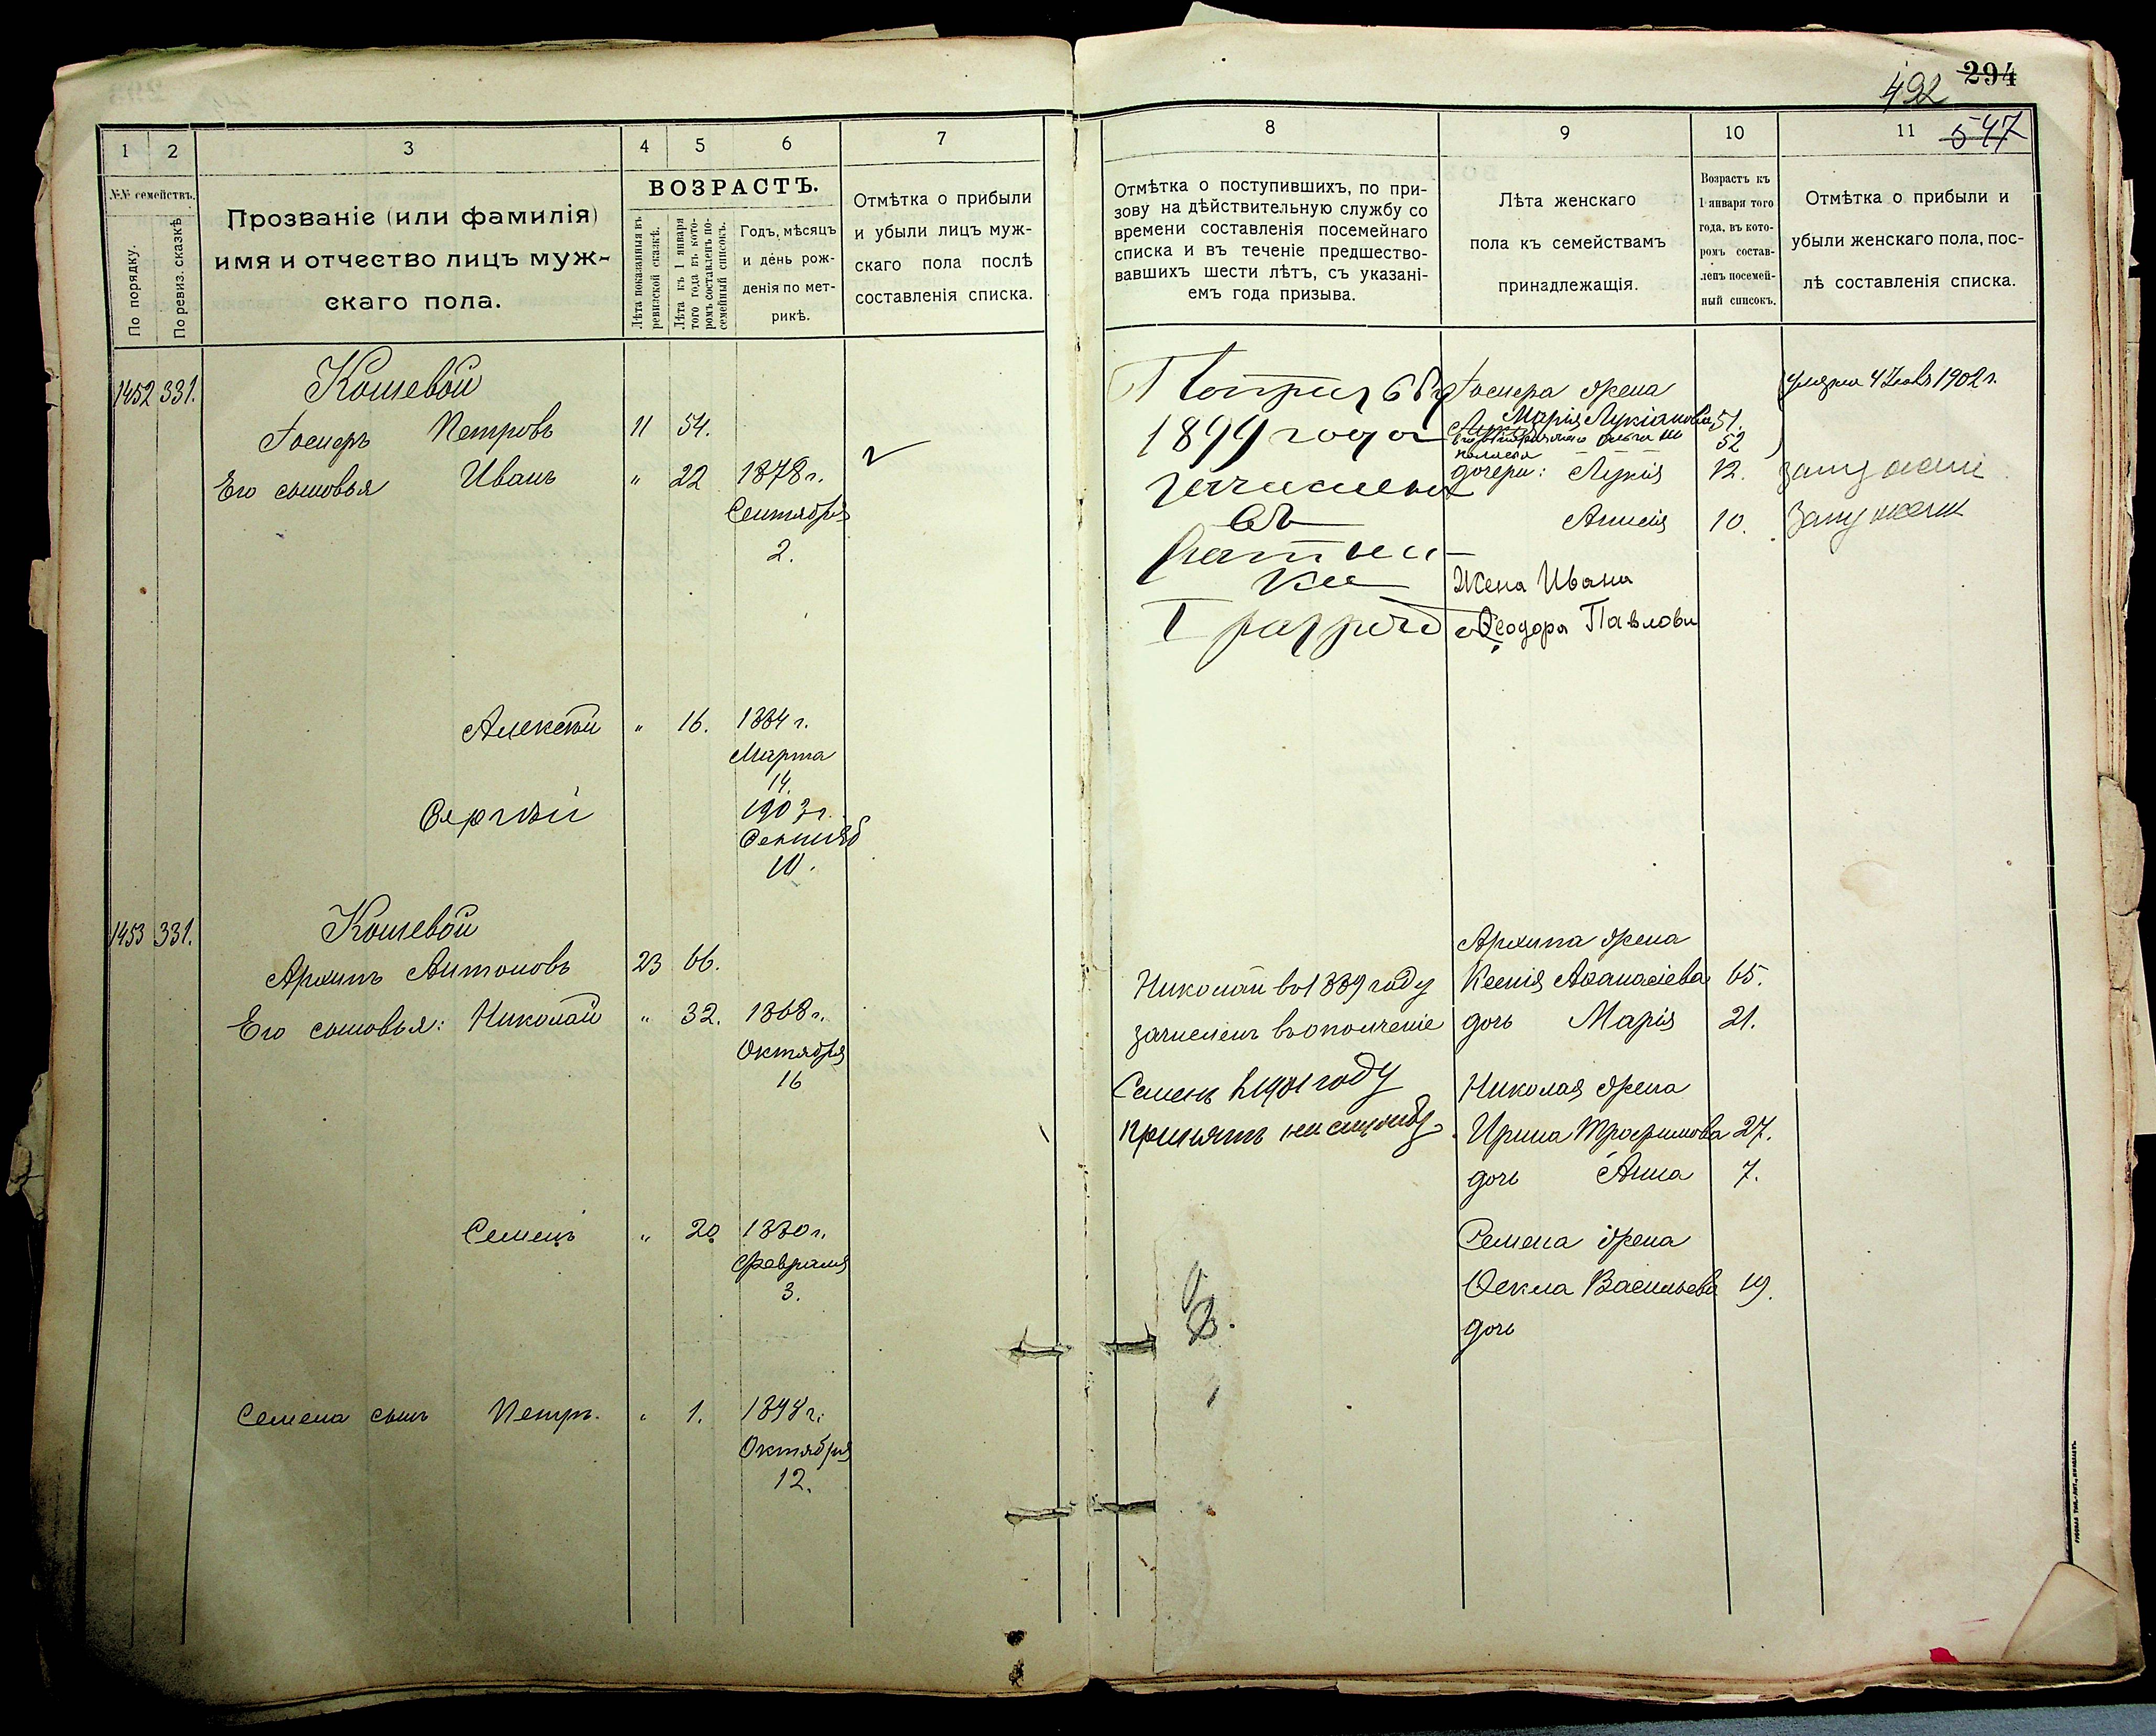 294
492
547
1
2
3
4
5
6
7
№№ семействъ.
По порядку.
По ревиз. сказкѣ
Прозваніе (или фамилія)
имя и отчество лицъ муж-
скаго пола.
ВОЗРАСТЪ.
Лѣта показанныя въ
ревизской сказкѣ.
Лѣта къ 1 января
того года въ кото-
ромъ составленъ по-
семейный списокъ.
Годъ, мѣсяцъ
и день рож-
денія по мет-
рикѣ.
Отмѣтка о прибыли
и убыли лицъ муж-
скаго пола послѣ
составленія списка.
1452 331.
Кошевой
Петровъ 11 54.
Его сыновья Иванъ " 22 1878 г.
Сентября
2.
Алексѣй " 16. 1884 г.
Марта
14.
Сергѣй 1903 г.
Сентяб
10.
1453 331.
Кошевой
Архипъ Антоновъ 23 66.
Его сыновья: Николай " 32. 1868 г.
Октября
16
Семенъ " 20 1880 г.
Февраля
3.
Семена сынъ Петръ. " 1. 1898 г.
Октября
12.
8
9
10
11
Отмѣтка о поступившихъ, по при-
зову на дѣйствительную службу со
времени составленія посемейнаго
списка и въ теченіе предшество-
вавшихъ шести лѣтъ, съ указані-
емъ года призыва.
Лѣта женскаго
пола къ семействамъ
принадлежащія.
Возрастъ къ
1 января того
года, въ кото-
ромъ состав-
ленъ посемей-
ный списокъ.
Отмѣтка о прибыли и
убыли женскаго пола, пос-
лѣ составленія списка.
1899 года
зачисленъ
въ
ратни-
ки
I разряд
жена
Марія Лукіанова 51.
52
4 1902 г.
дочери: Лукія 12. замужем
Анисія 10. Замужем
Жена Ивана
Ѳеодора Павлова
Архипа жена
Ксенія Аѳанасіева 65.
дочь Марія 21.
Николай въ 1889 году
зачисленъ въ ополченіе
Семенъ в 1901 году
принятъ на службу.
Николая жена
Ирина Трофимова 27.
дочь Анна 7.
Семена жена
Ѳекла Васильева 19.
дочь